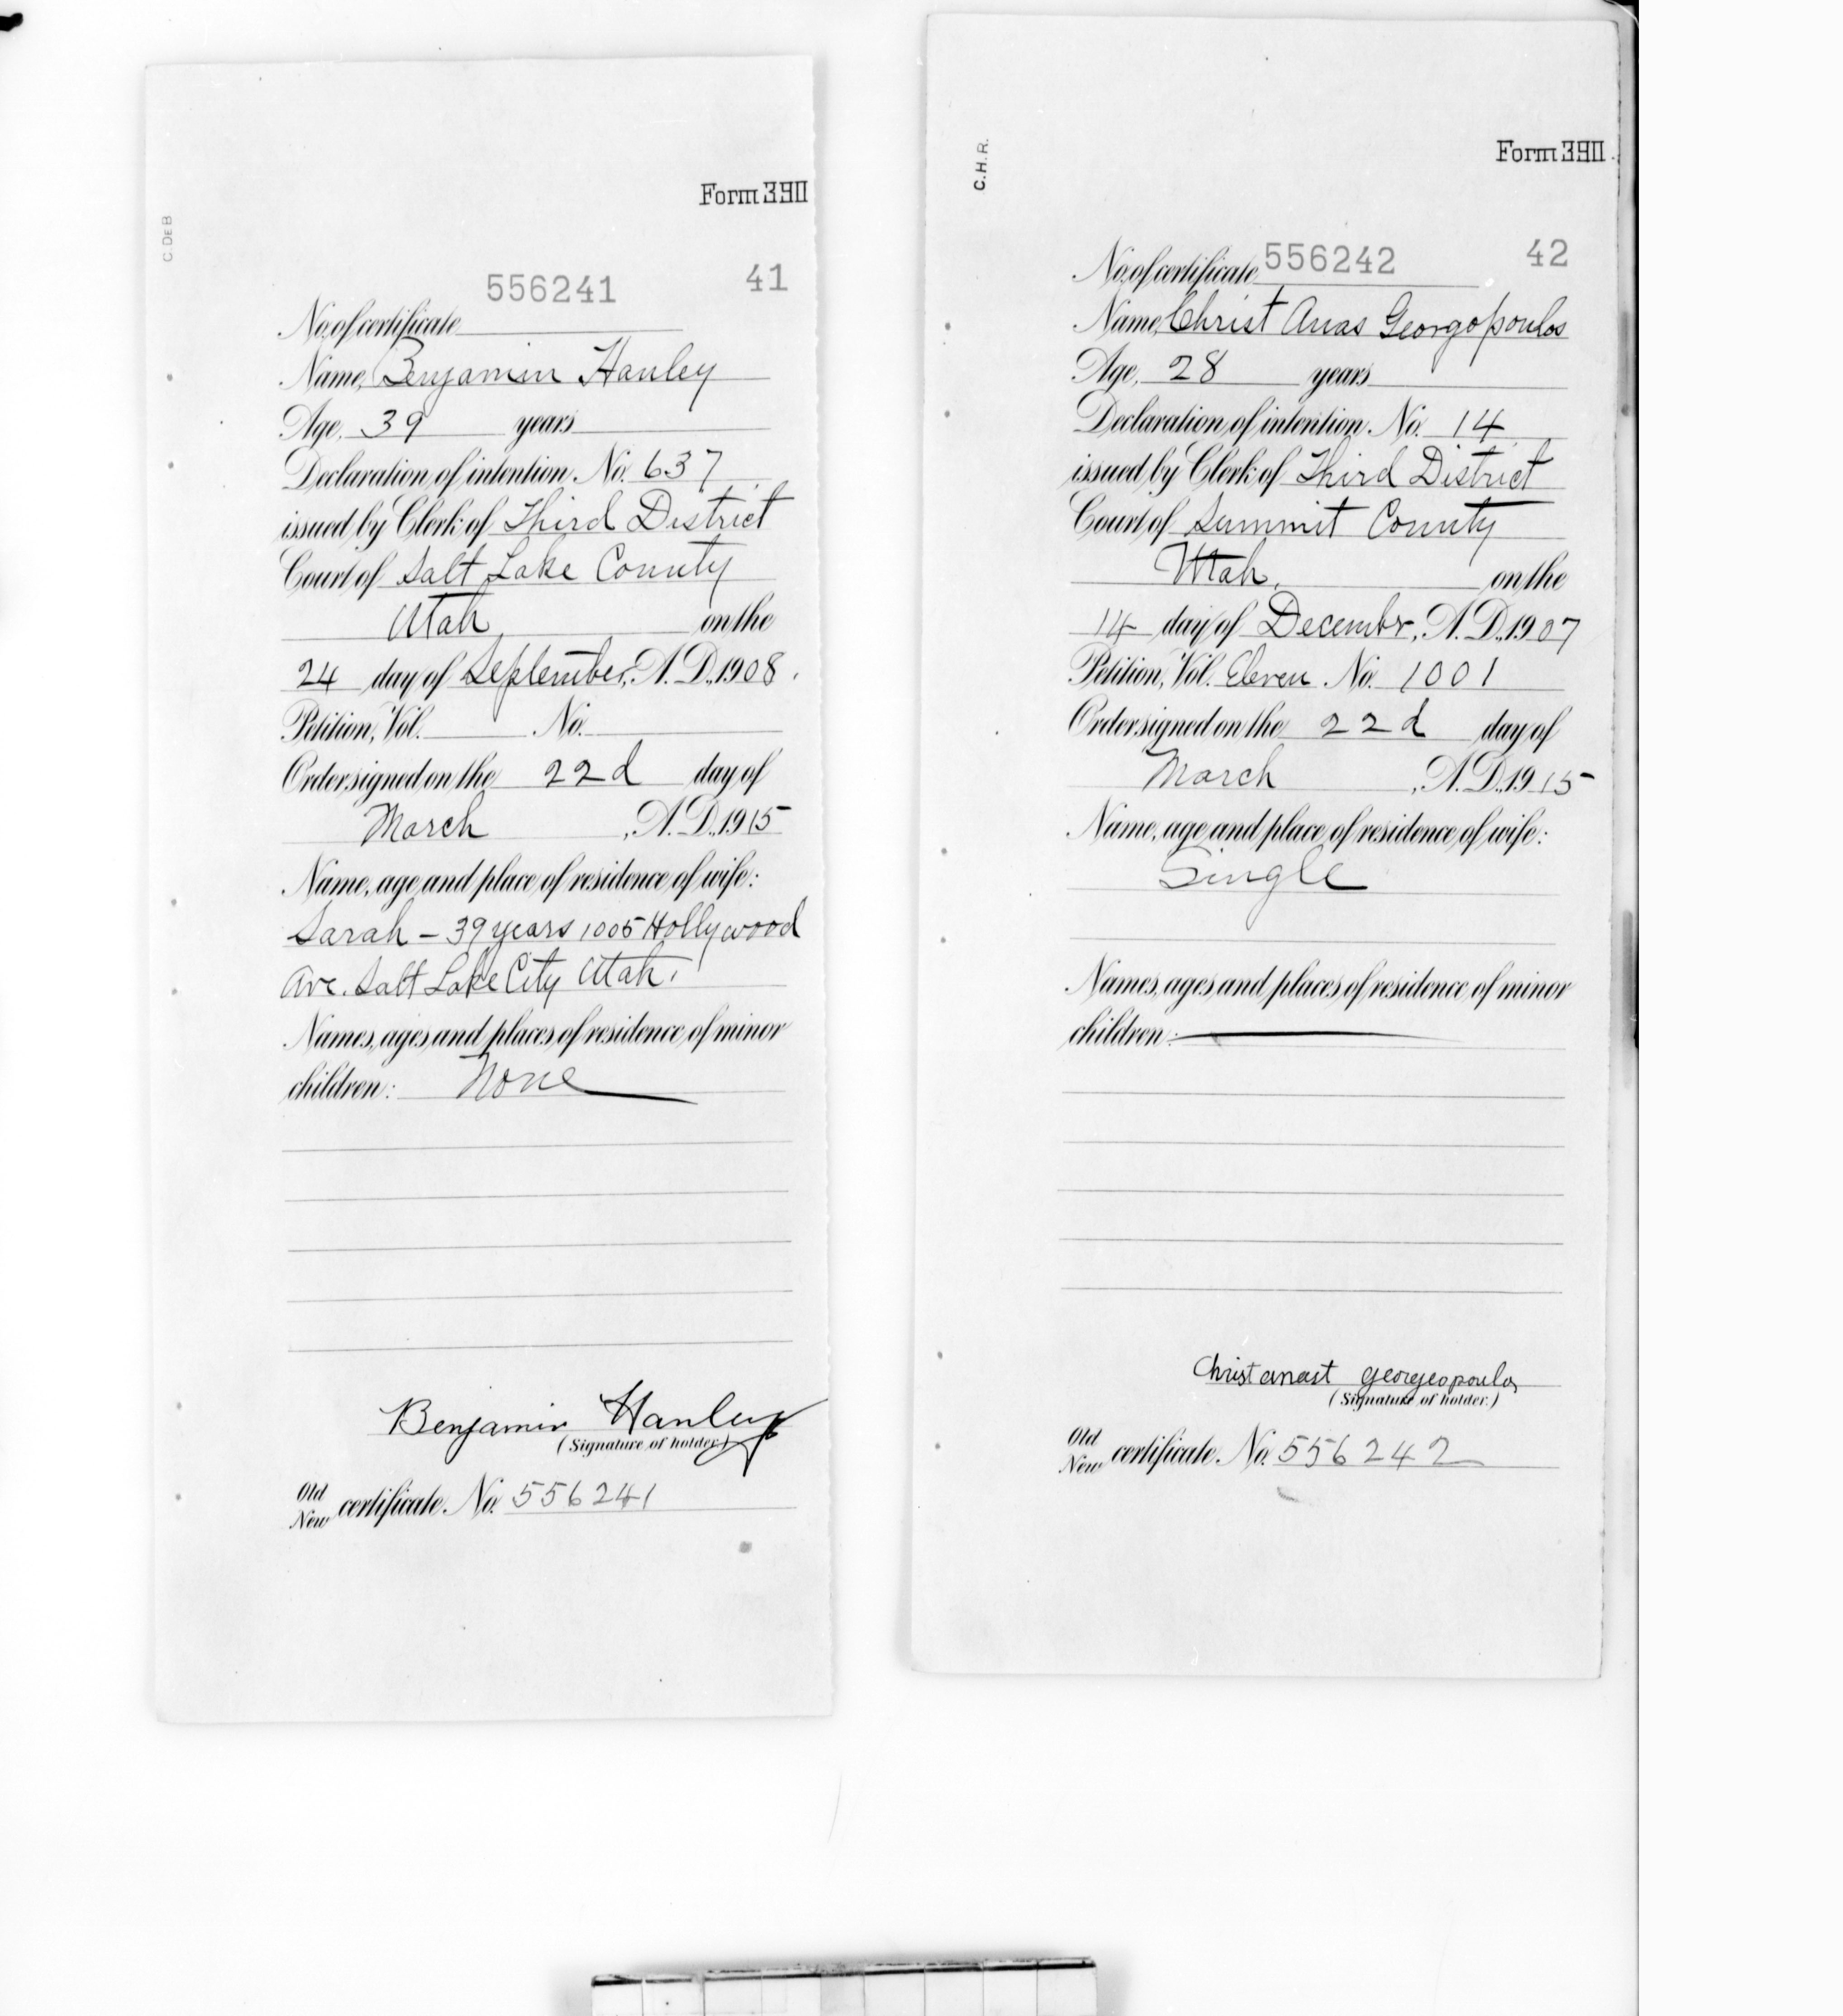 C. DE B
Form 390
556241 41
No. of certificate
Name, Benjamin Hanley
Age, 39 years
Declaration of intention, No. 637
issued by Clerk of Third District
Court of Salt Lake County
Utah on the
24 day of September, A. D., 1908.
Petition, Vol. No.
Order signed on the 22d day of
March, A. D., 1915
Name, age and place of residence of wife:
Sarah – 39 years 1005 Hollywood
Ave. Salt Lake City Utah.
Names, ages and places of residence of minor
children: None
Benjamin Hanley
(Signature of holder.)
Old
New certificate. No. 556241
C. H. R.
Form 390
No. of certificate 556242 42
Name, Christ Anas Georgopoulos
Age, 28 years
Declaration of intention, No. 14
issued by Clerk of Third District
Court of Summit County
Utah, on the
14 day of Decembr, A. D., 1907
Petition, Vol. Eleven No. 1001
Order signed on the 22d day of
March, A. D., 1915
Name, age and place of residence of wife:
Single
Names, ages and places of residence of minor
children:
Christ anast georgeopoulos
(Signature of holder.)
Old
New certificate. No. 556242